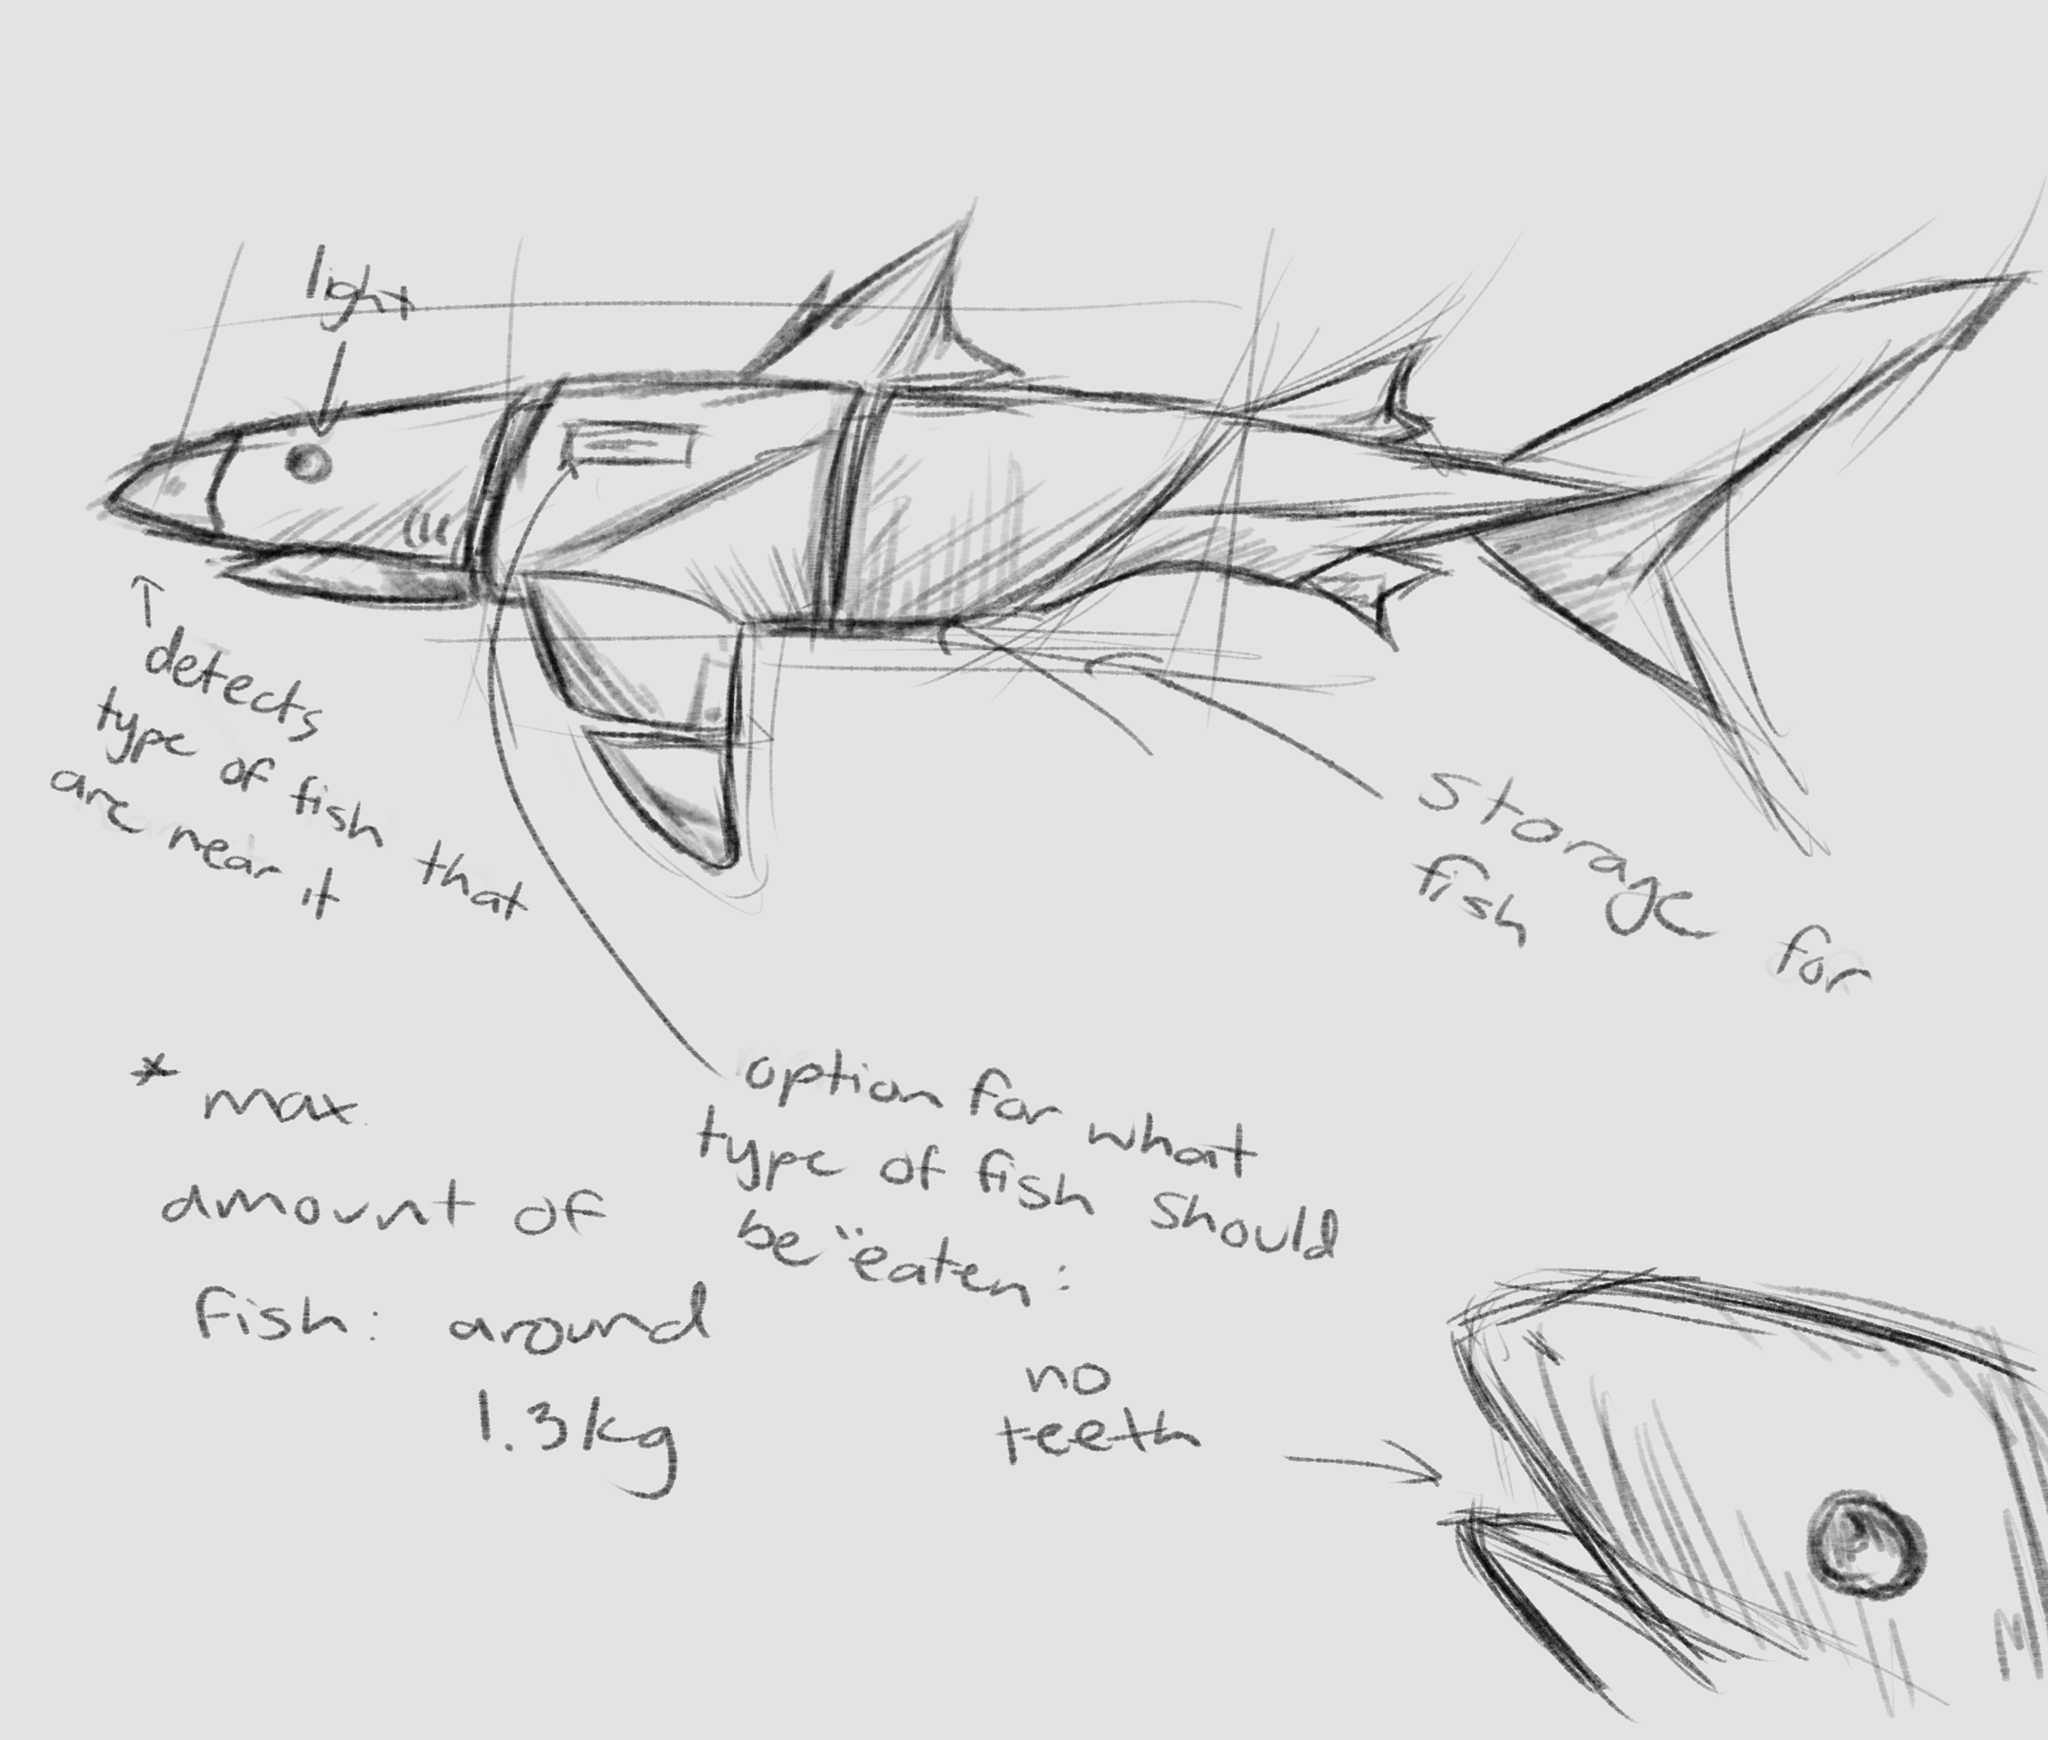 light
detects
type of fish that
are near it
storage for
fish
option for what
type of fish should
be "eaten:
* max
amount of
fish: around
1.3kg
no
teeth